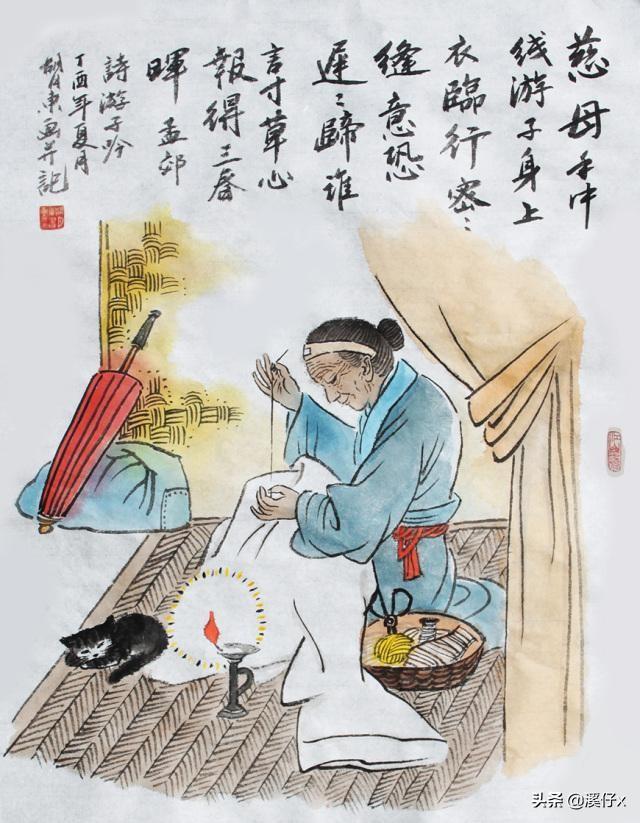 慈母手中
线游子身上
衣臨行密〻
縫意恐
遲〻歸谁
言寸草心
報得三春
暉孟郊
詩游子吟
丁酉年夏月
画并記
头条 @溪仔x